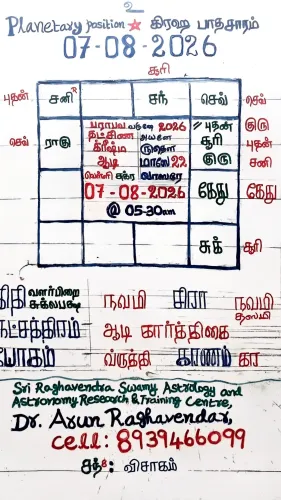 2
Planetary position ★ கிரஹ பாதசாரம்
07-08-2026
சூரி
புதன் சனி R சந் செவ் செவ்
பராபவ வருஷ 2026 // புதன் குரு
தட்சிண அயனே சூரி புதன்
செவ் ராகு க்ரீஷ்ம ருதௌ குரு சனி
ஆடி மாஸே 22
வெள்ளி சுக்ர வாஸரே
07-08-2026 கேது கேது
@ 05-30am
சுக் சூரி
திதி வளர்பிறை சுக்லபக்ஷ நவமி சிரா நவமி
நட்சத்திரம் ஆடி கார்த்திகை
யோகம் வ்ருத்தி காரணம் கர
Sri Raghavendra Swamy Astrology and
Astronomy, Research & Training Centre,
Dr. Arun Raghavendar,
Cell: 8939466099
விசாகம்